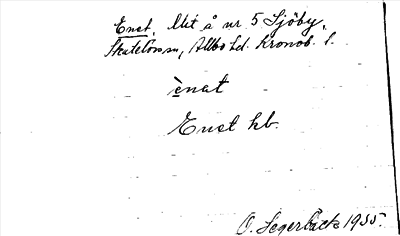 Enet, Mit å nr 5 Sjöby,
Skatelövs sn, Allbo hd. Kronob. l.
ènat
Enet kb.
O. Segerbäck 1935.